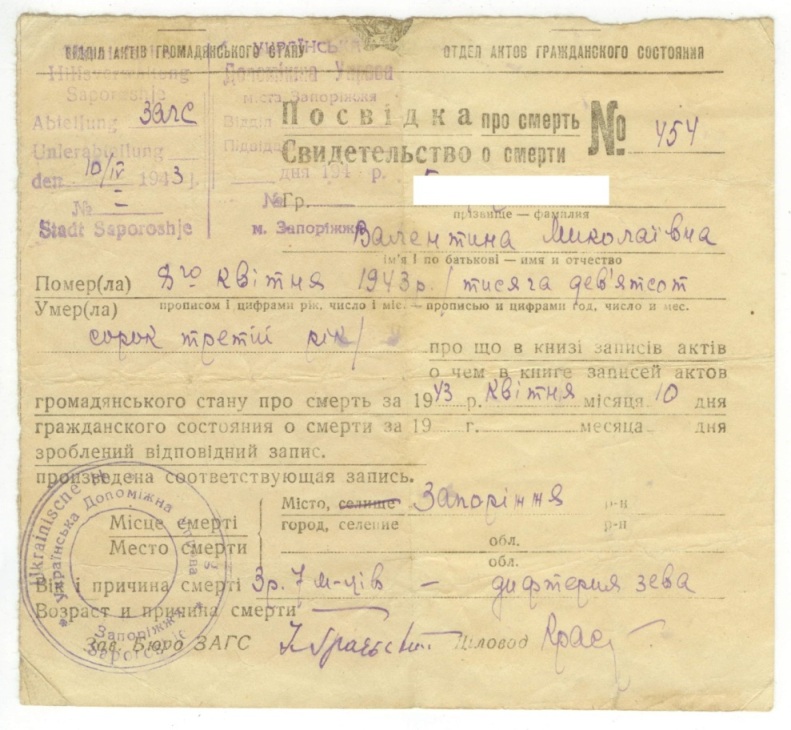 ВІДДІЛ АКТІВ ГРОМАДЯНСЬКОГО СТАНУ
ОТДЕЛ АКТОВ ГРАЖДАНСКОГО СОСТОЯНИЯ
Hilfsverwaltung
Saporoshje
Abteilung ЗАГС
Unterabteilung
den 10/IV 1943 j.
№ –
Stadt Saporoshje
УКРАЇНСЬКА
Допоміжна Управа
міста Запоріжжя
Відділ
Підвідділ
дня 194 р.
№
м. Запоріжжя
Посвідка про смерть № 454
Свидетельство о смерти
Гр.
прізвище — фамилия
Валентина Миколаївна
ім'я і по батькові — имя и отчество
Помер(ла) 8го квітня 1943 р. /тисяча дев'ятсот
Умер(ла) прописом і цифрами рік, число і міс. — прописью и цифрами год, число и мес.
сорок третій рік/
про що в книзі записів актів
о чем в книге записей актов
громадянського стану про смерть за 1943 р. квітня місяця 10 дня
гражданского состояния о смерти за 19 г. месяца дня
зроблений відповідний запис.
произведена соответствующая запись.
Місце смерті
Место смерти
Місто, селище Запоріння р-н
город, селение р-н
обл.
обл.
Вік і причина смерті 3 р. 7 м-ців – дифтерия зева
Возраст и причина смерти
Зав. Бюро ЗАГС
Діловод
Ukrainische
Українська Допоміжна Управа
Запоріжжя